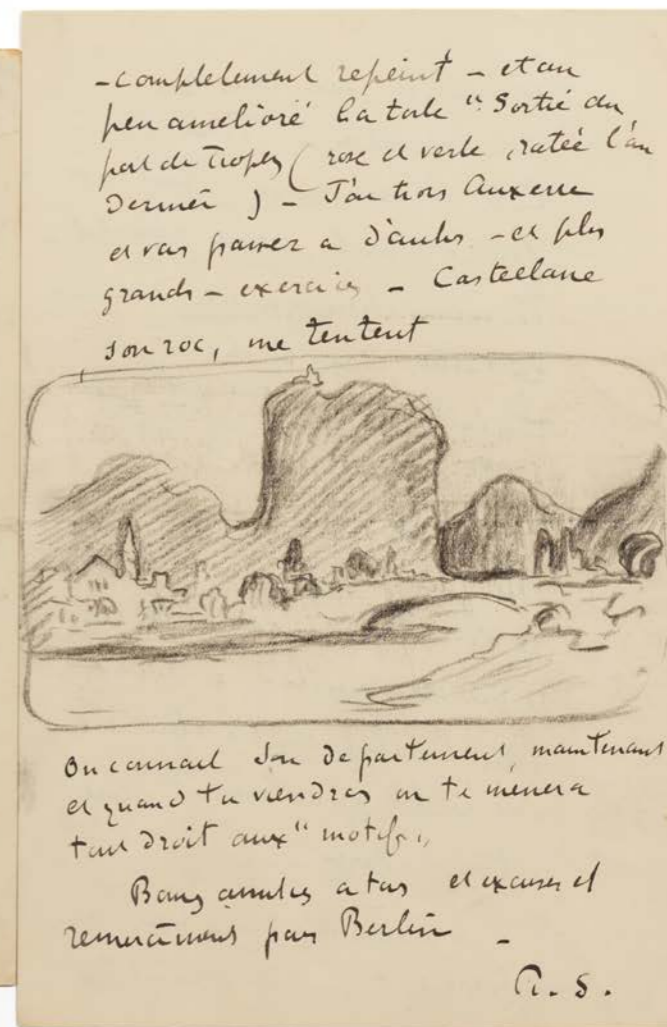 - complètement repeint - et un
peu amélioré la toile "Sortie du
port de Tropez ( rose et verte, ratée l'an
Dernier ) - J'ai trois Auxerre
et vais passer a d'autres - et plus
grands - exercices - Castellane
son roc, me tentent
On connait son departement, maintenant
et quand tu viendras on te mènera
tout droit aux "motifs"
Bons amitiés a tous et excuses et
remerciements pour Berlin -
P. S.